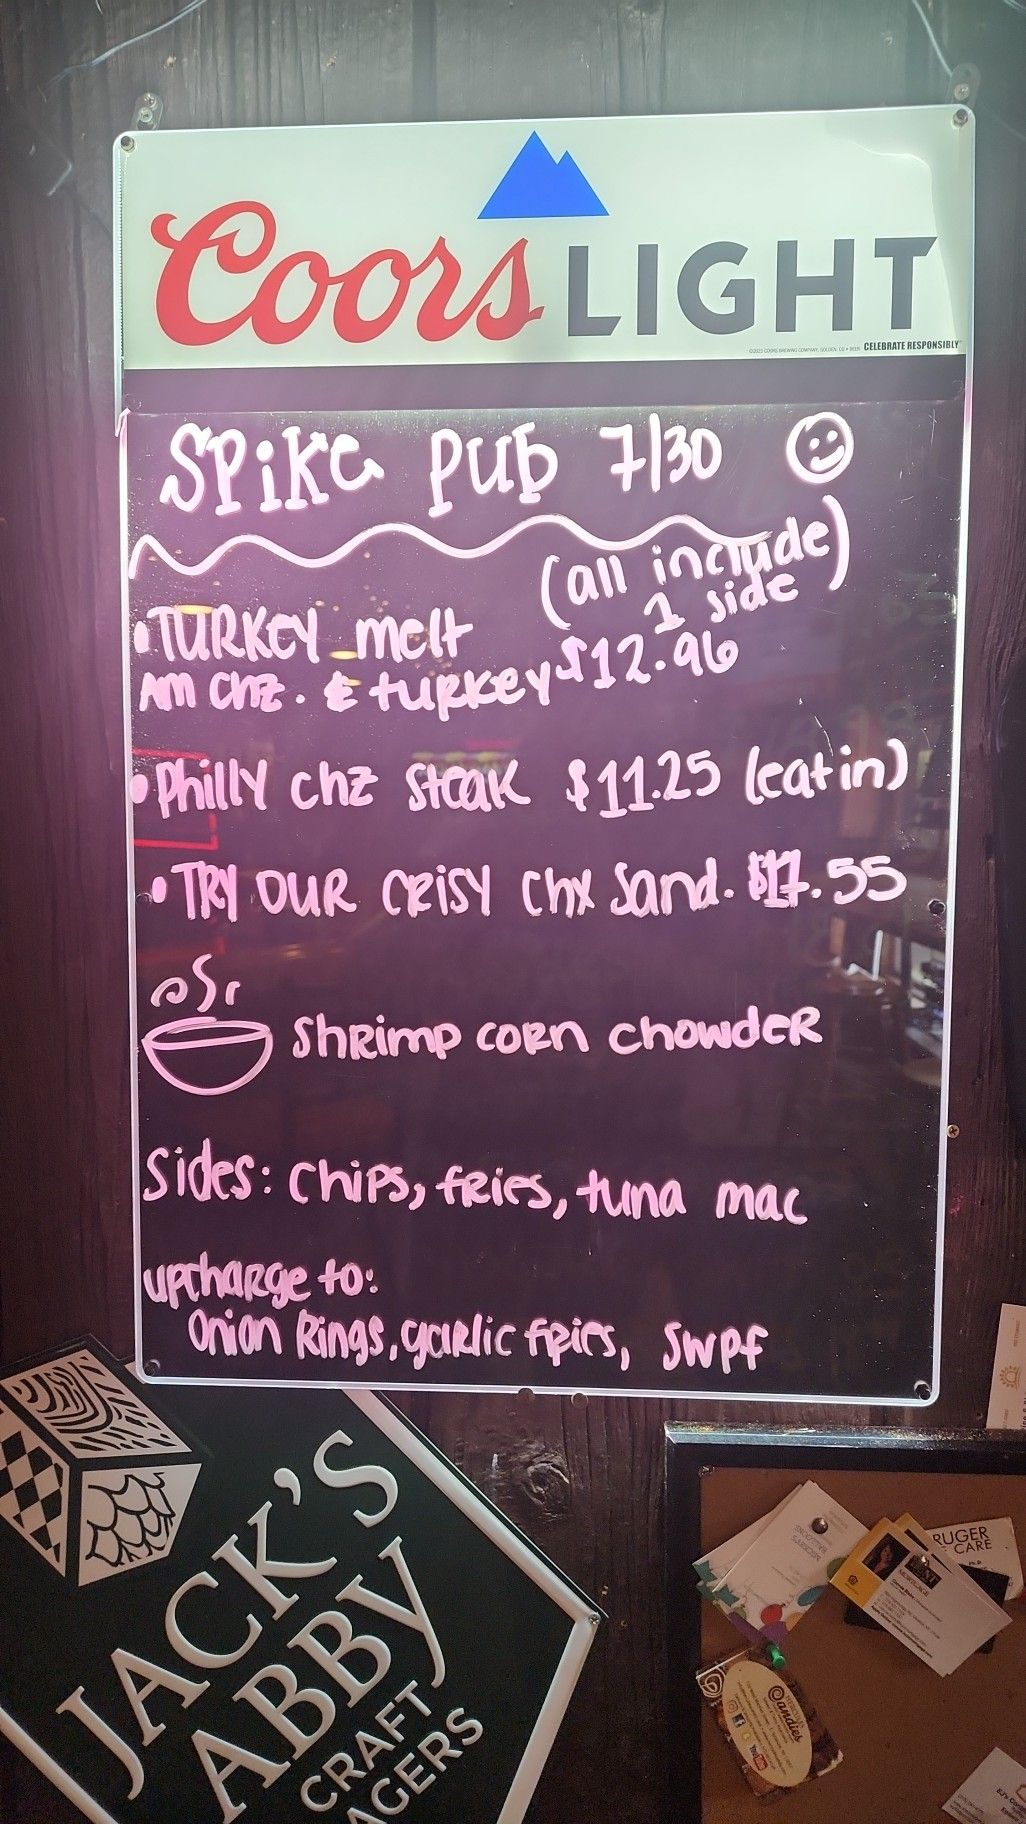 Coors LIGHT
©2023 COORS BREWING COMPANY, GOLDEN, CO • BEER CELEBRATE RESPONSIBLY
SPiKe PUB 7/30
(all include
1 side)
• TURKEY melt
Am chz. & turkey $12.96
• Philly chz steak $11.25 (eat in)
• TRY OUR CRISY Chx Sand. $17.55
Shrimp corn chowder
Sides: Chips, fries, tuna mac
upcharge to:
Onion Rings, garlic fries, SWPF
JACK'S
ABBY
CRAFT
AGERS
RUGER
CARE
MORTGAGE
Candies
You Tube